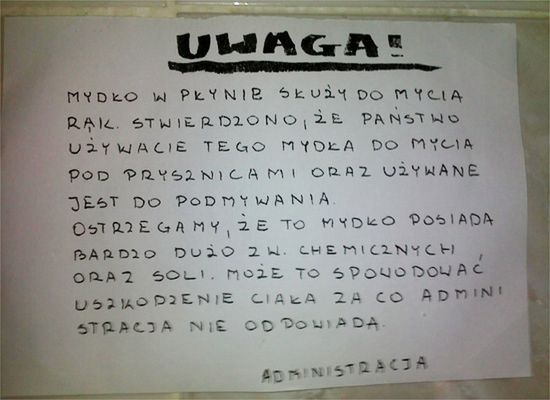 UWAGA!
MYDŁO W PŁYNIE SŁUŻY DO MYCIA
RĄK. STWIERDZONO, ŻE PAŃSTWO
UŻYWACIE TEGO MYDŁA DO MYCIA
POD PRYSZNICAMI ORAZ UŻYWANE
JEST DO PODMYWANIA.
OSTRZEGAMY, ŻE TO MYDŁO POSIADA
BARDZO DUŻO ZW. CHEMICZNYCH
ORAZ SOLI. MOŻE TO SPOWODOWAĆ
USZKODZENIE CIAŁA ZA CO ADMINI
STRACJA NIE ODPOWIADA.
ADMINISTRACJA